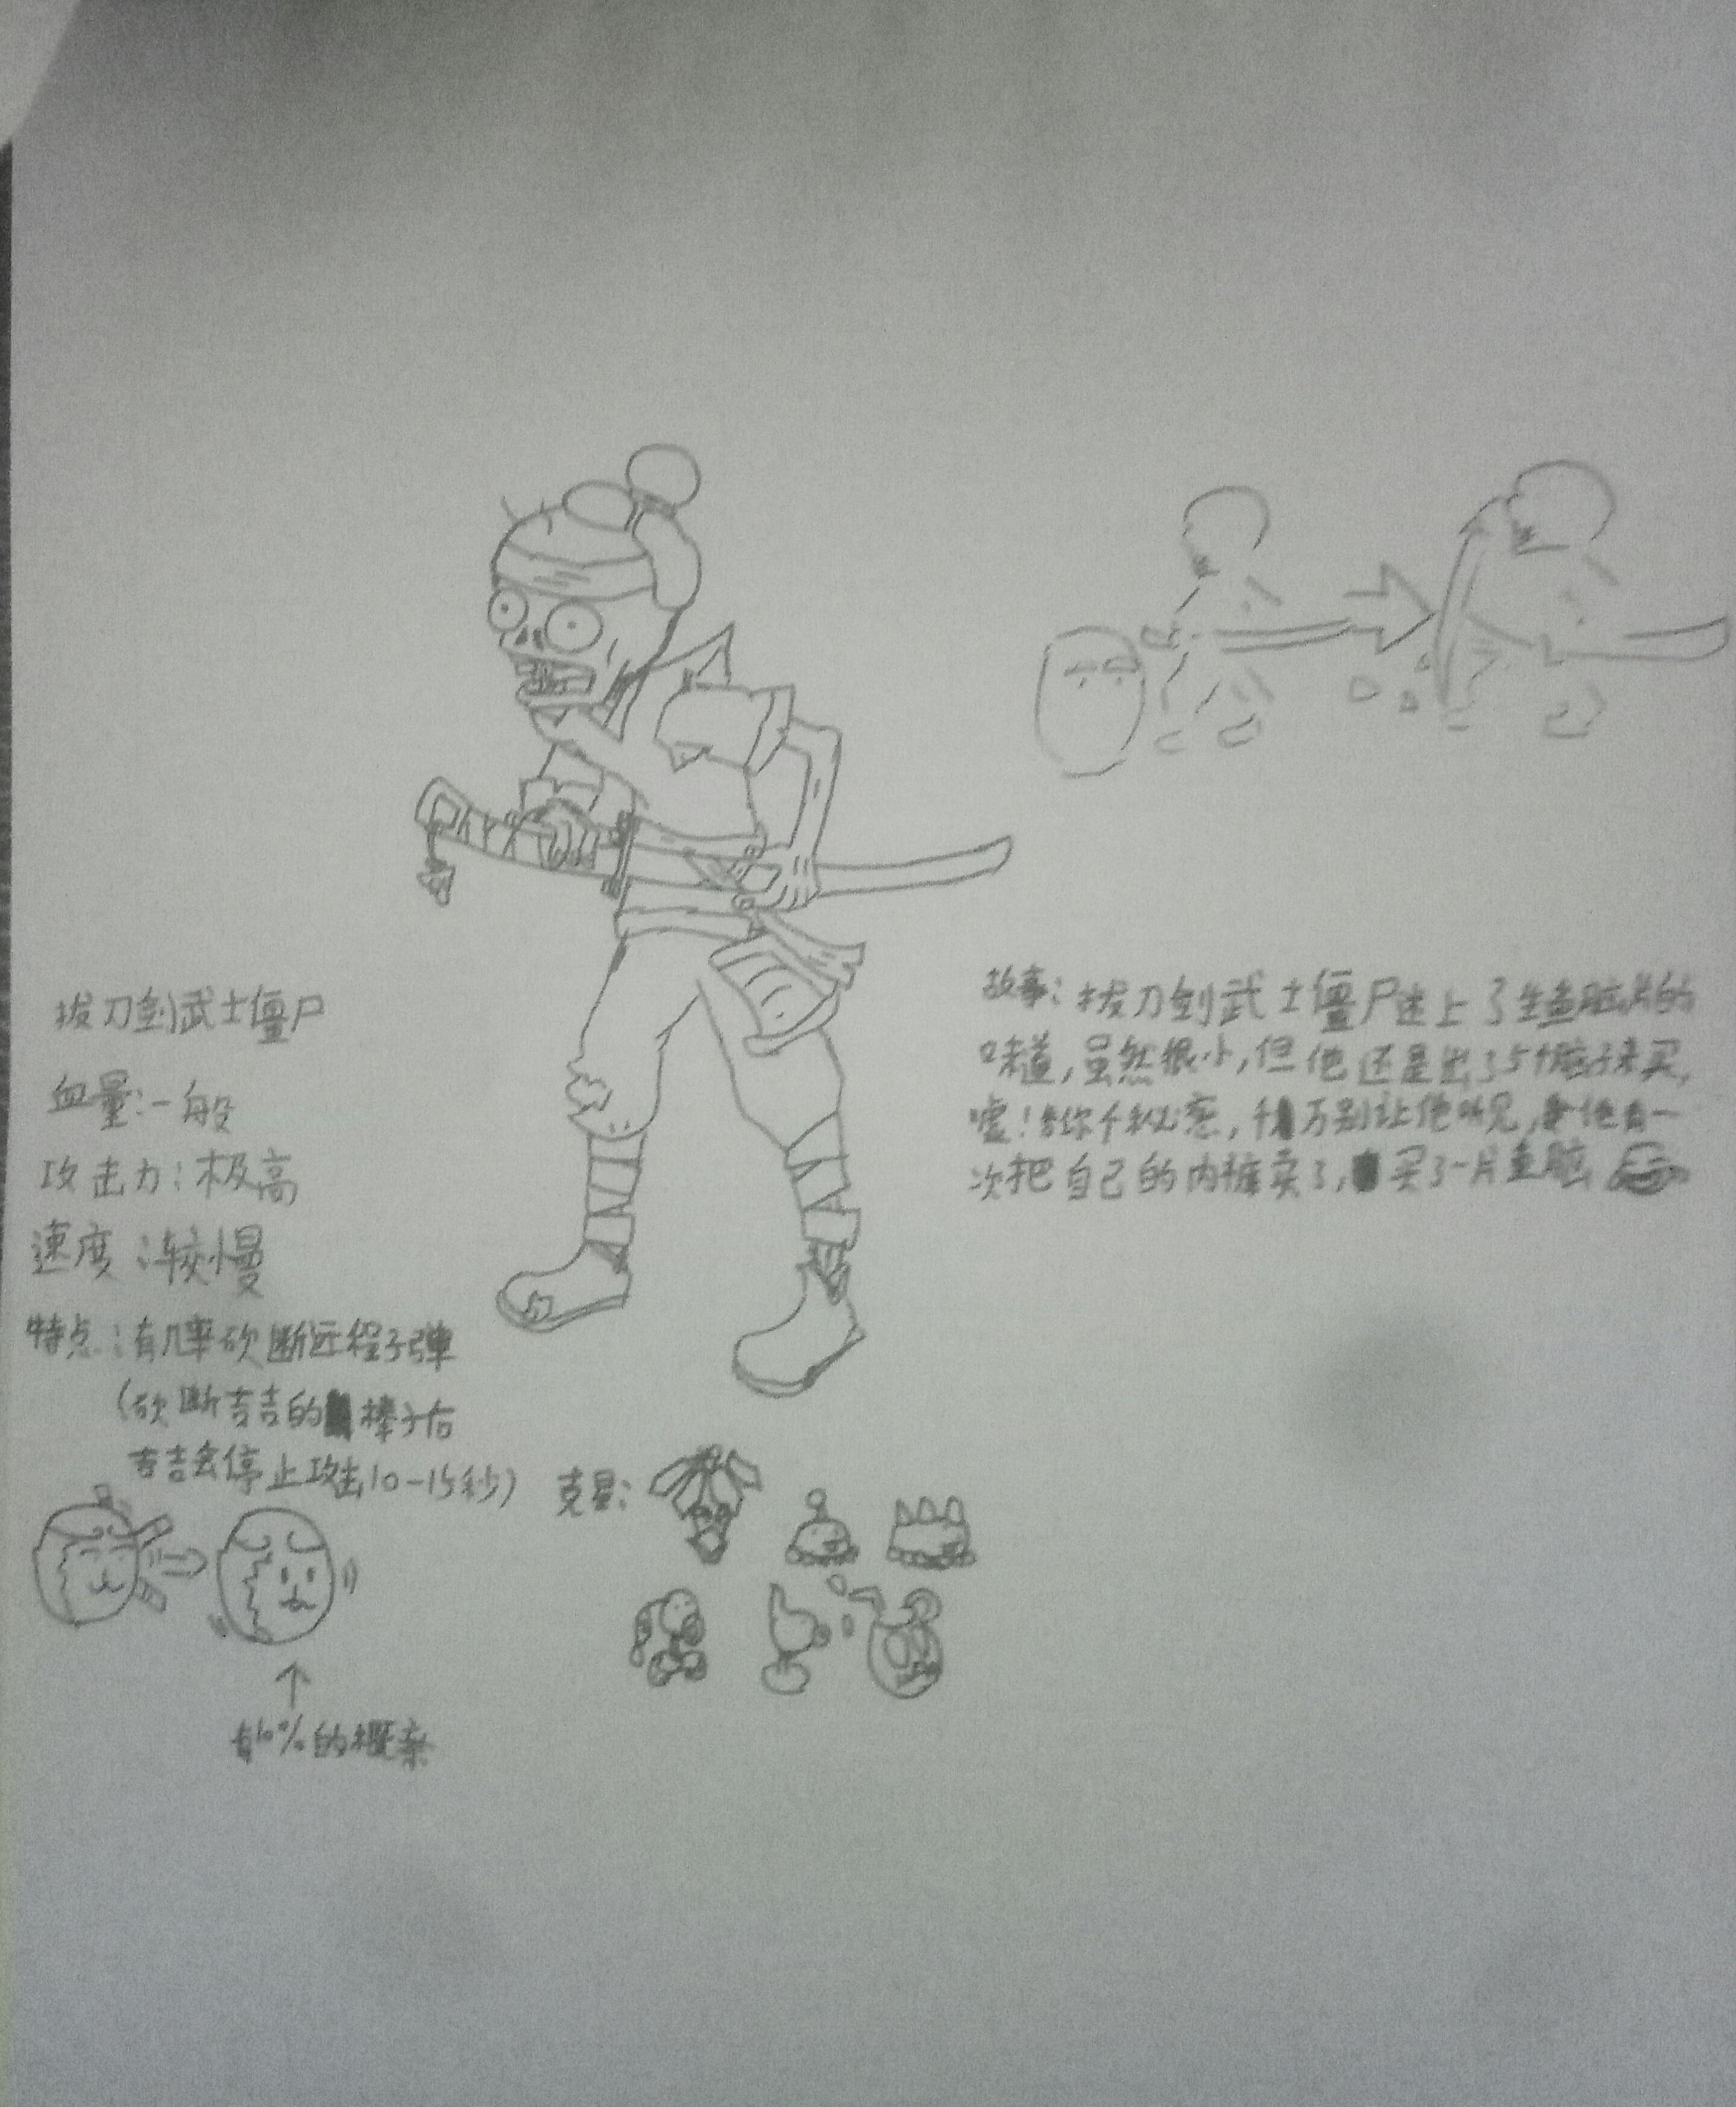 拔刀剑武士僵尸
血量:一般
攻击力:极高
速度:较慢
特点:有几率砍断远程子弹
(砍断吉吉的棒子后
吉吉会停止攻击10-15秒)
有10%的概率
克星:
故事:拔刀剑武士僵尸迷上了生鱼脑片的
味道,虽然很小,但他还是出了5个脑子来买,
嘘!告诉你个秘密,千万别让他听见,他有一
次把自己的内裤卖了,买了一片鱼脑